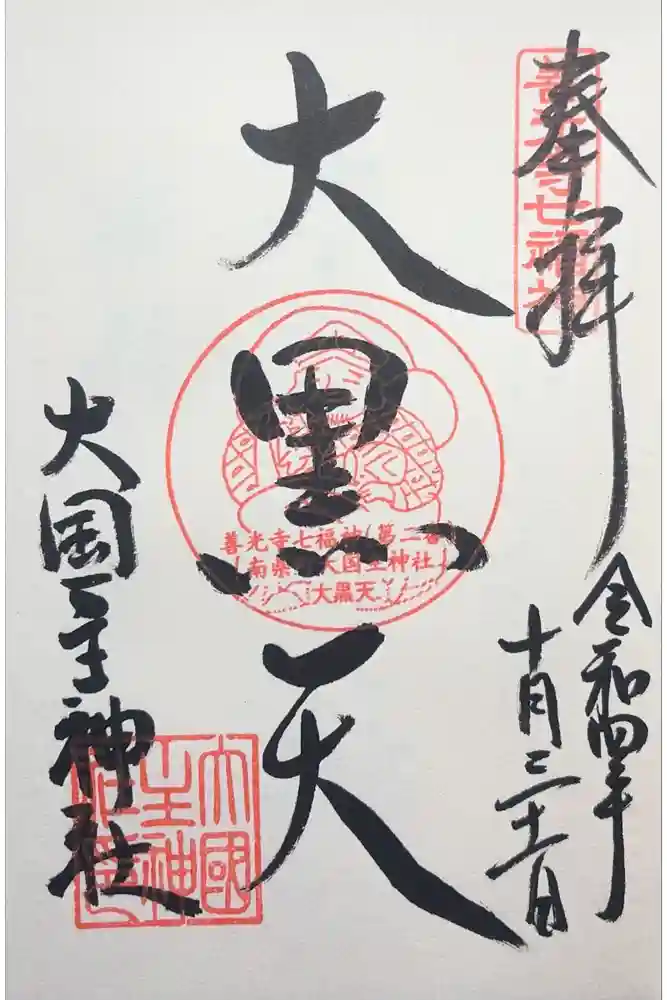 奉拝
善光寺七福神
令和四年
十月三十一日
大黒天
善光寺七福神(第二番
南県 大国主神社
大黒天
大国主神社
大國
主神
社